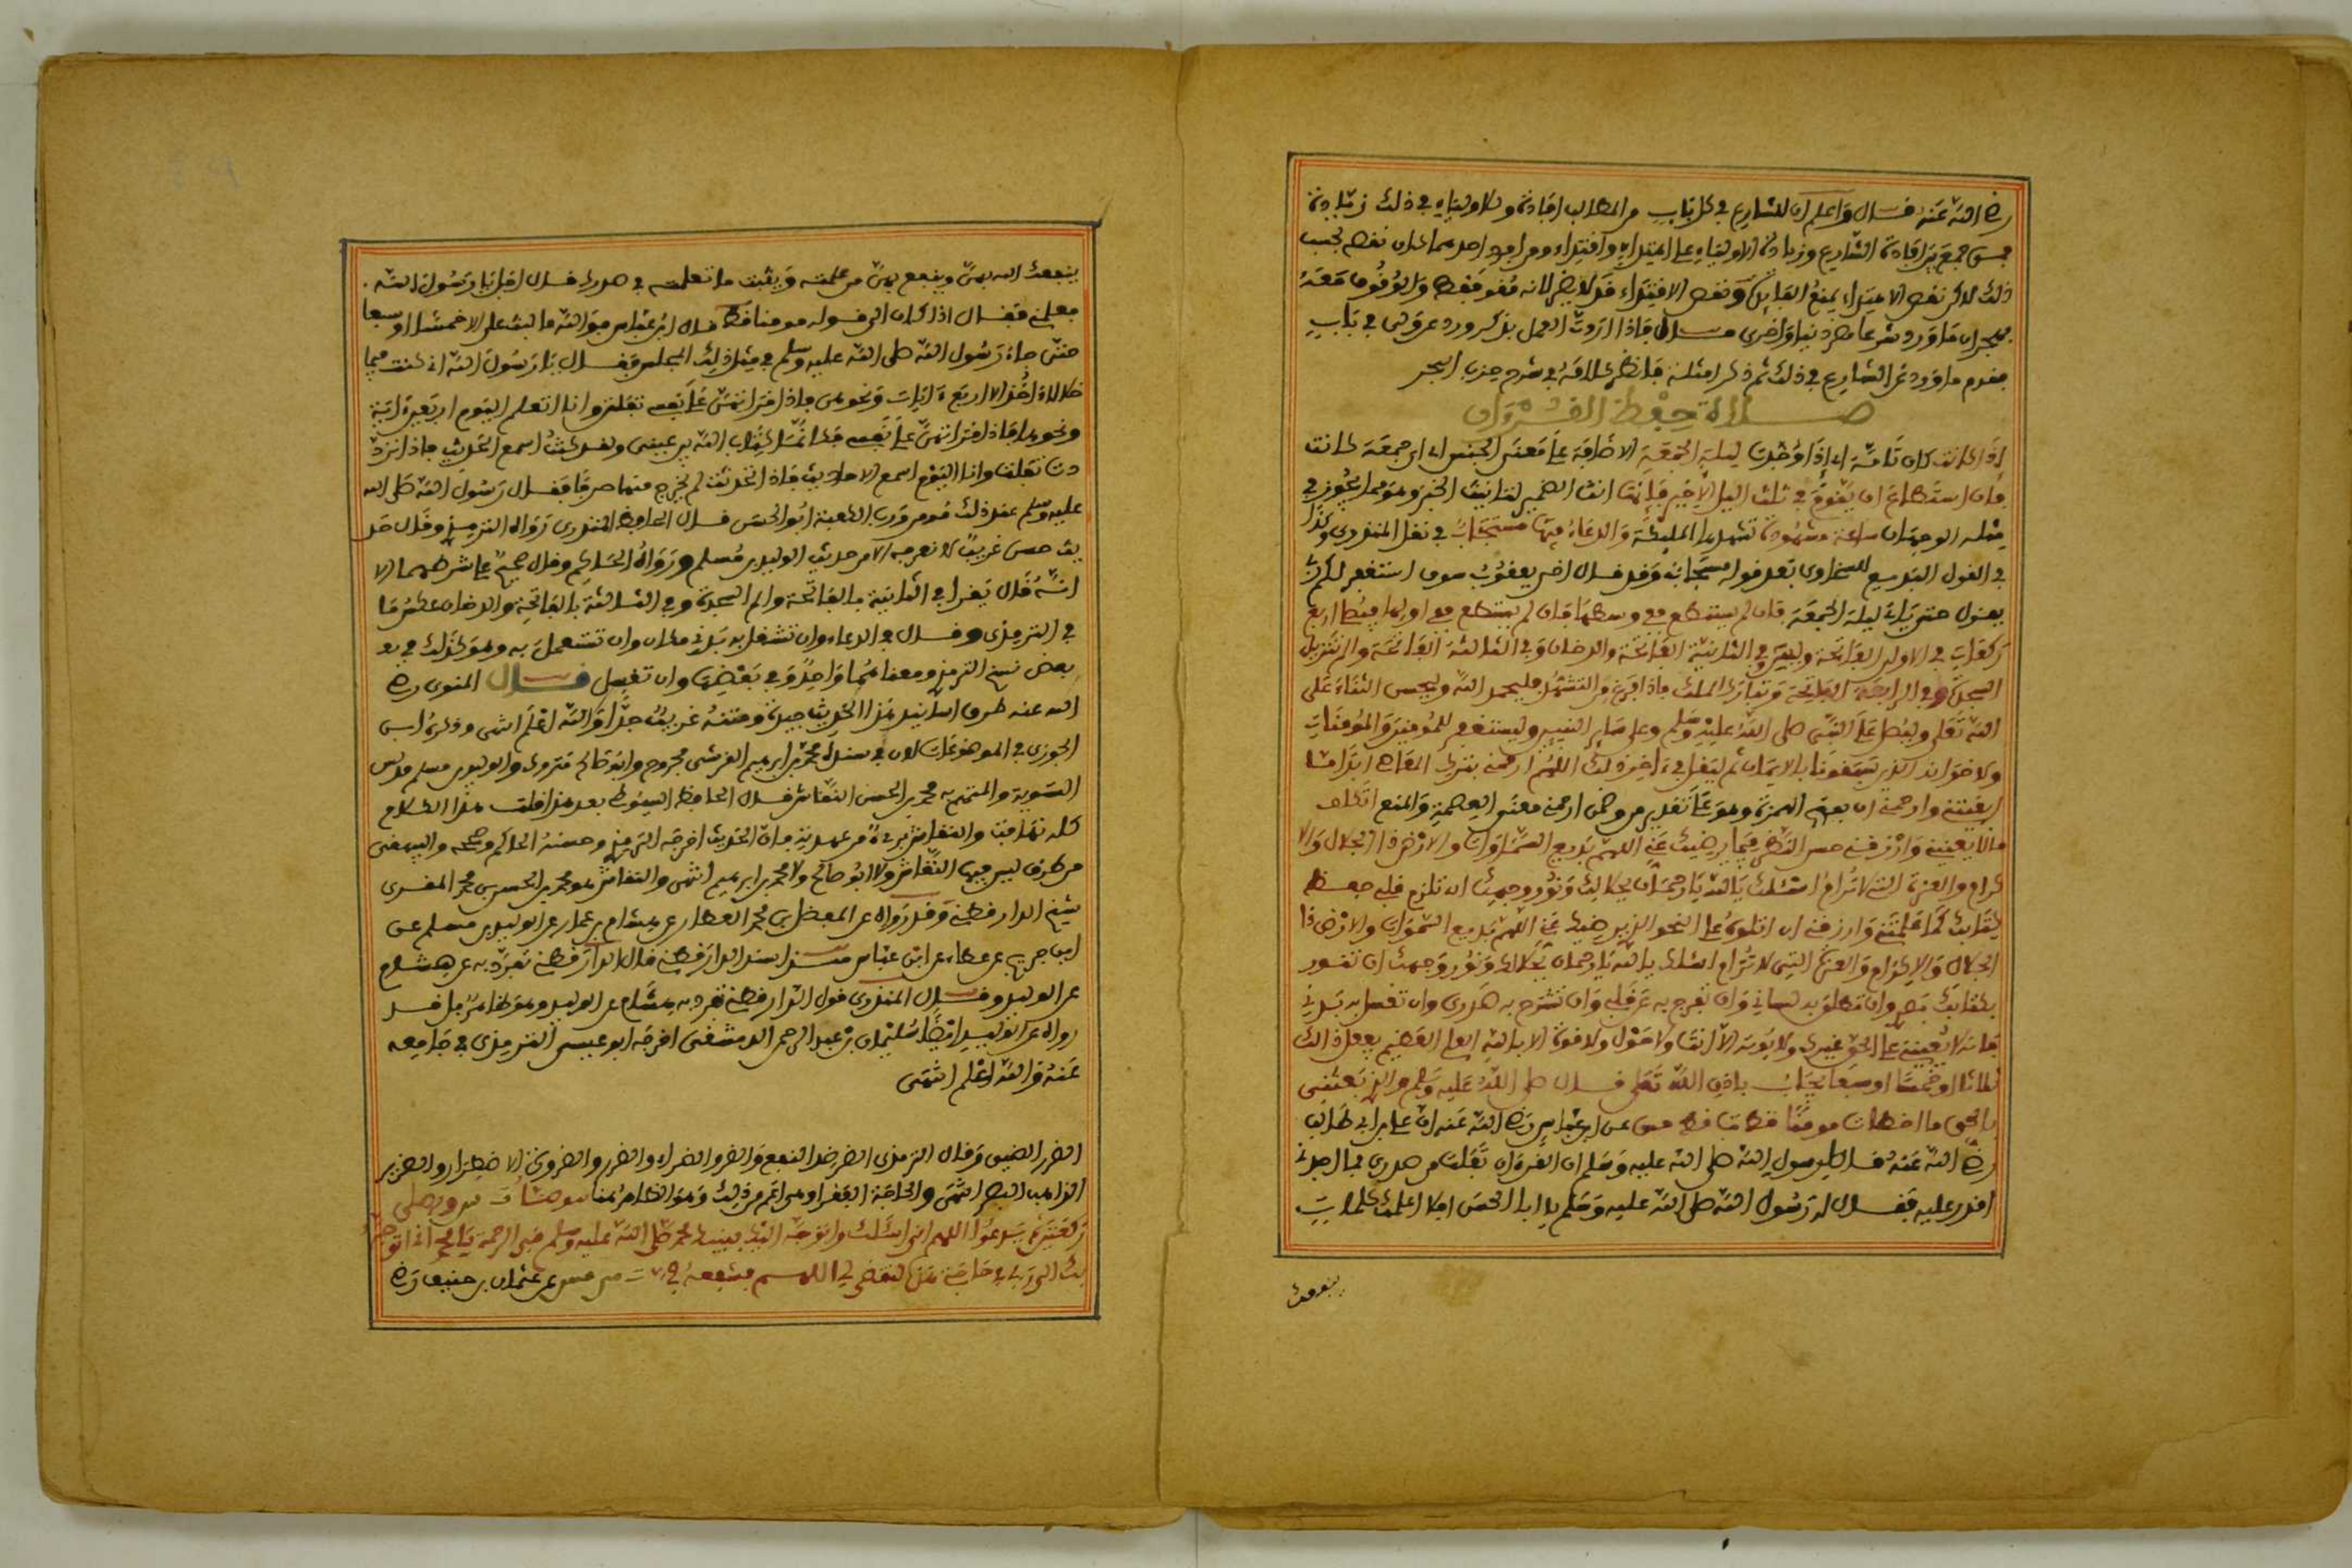 رضي الله عنه قال واعلم ان للشارع في كل باب من المطالب افادة وللاولياء في ذلك زيادة
فمن جمع بين افادة الشارع وزيادة الاولياء على اهتداء واقتداء ومن افرد احدهما كان نقصه بحسب
ذلك لاكن نقص الاهتداء يمنع الفايدة ونقص الاقتداء قد لا يضر لانه مقو فقط والوقوف معه
ما ورد شرعا دنيا واخرى فاذا اردت العمل بذكر ورد عن ولي في باب
فقدم ما ورد عن الشارع في ذلك ثم ذكر امثلة فانظر كلامه في شرح حزب البحر
صلاة حفظ القرءان
اذا كانت كان تامة اي اذا وجدت ليلة الجمعة الاضافة على معنى الجنس اي اي جمعة كانت
فان استطاع ان يقوم في ثلث اليل الاخير فانها انث الضمير لتانيث الخبر وهو مما يجوز في
مثله الوجهان ساعة مشهودة تشهدها المليكة والدعاء فيها مستجاب في نقل المنذري وكذا
في القول البديع للسخاوي بعد قوله مستجاب وقد قال اخي يعقوب سوف استغفر لكم ربي
يقول حتى ياتي ليلة الجمعة فان لم يستطع ففي وسطها فان لم يستطع ففي اولها فيصل اربع
ركعات في الاولى الفاتحة ويس وفي الثانية الفاتحة والدخان وفي الثالثة الفاتحة والم تنزيل
السجدة وفي الرابعة الفاتحة وتبارك الملك فاذا فرغ من التشهد فليحمد الله وليحسن الثناء على
الله تعلى وليصل على النبي صلى الله عليه وسلم وعلى ساير النبيين وليستغفر للمومنين والمومنات
ولاخوانه الذين سبقونا بالايمان ثم ليقل في ءاخر ذلك اللهم ارحمني بترك المعاصي ابدا ما
ابقيتني وارحمني ان بفتح الهمزة وهو على تقدير من وضمن ارحمني معنى العصمة والمنع اتكلف
ما لا يعنيني وارزقني حسن النظر فيما يرضيك عني اللهم بديع السموات والارض ذا الجلال والا
كرام والعزة التي لا ترام اسئلك يا الله يا رحمان بجلالك ونور وجهك ان تلزم قلبي حفظ
كتابك كما علمتني وارزقني ان اتلوه على النحو الذي يرضيك عني اللهم بديع السموات والارض ذا
الجلال والاكرام والعزة التي لا ترام اسئلك يا الله يا رحمان بجلالك ونور وجهك ان تنور
بكتابك بصري وان تطلق به لساني وان تفرج به عن قلبي وان تشرح به صدري وان تغسل به بدني
فانه لا يعينني على الحق غيرك ولا يوتيه الا انت ولا حول ولا قوة الا بالله العلي العظيم يفعل ذالك
ثلاثا او خمسا او سبعا يجاب باذن الله تعلى قال صلى الله عليه وسلم والذي بعثني
بالحق ما اخطات مومنا قط عن ابن عباس رضي الله عنه ان علي بن ابي طالب
رضي الله عنه قال لرسول الله صلى الله عليه وسلم ان القرءان تفلت من صدري فما اجدني
اقدر عليه فقال له رسول الله صلى الله عليه وسلم يا ابا الحسن افلا اعلمك كلمات
ينفعك
ينفعك الله بهن وينفع بهن من علمته ويثبت ما تعلمت في صدرك قال اجل يا رسول الله
فعلمني فقال اذا كان الى قوله مومنا قط قال ابن عباس فوالله ما لبث علي الا خمسا او سبعا
حتى جاء رسول الله صلى الله عليه وسلم في مثل ذلك المجلس فقال يا رسول الله اني كنت فيما
خلا لا ءاخذ الا اربع ءايات ونحوهن فاذا قراتهن على نفسي تفلتن وانا اتعلم اليوم اربعين ءاية
ونحوها فاذا قراتهن على نفسي فكانما كتاب الله بين عيني ولقد كنت اسمع الحديث فاذا ارد
دت تفلت وانا اليوم اسمع الاحاديث فاذا تحدثت لم يخرج منها حرفا فقال رسول الله صلى الله
عليه وسلم عند ذلك مومن ورب الكعبة ابو الحسن قال الحافظ المنذري رواه الترمذي وقال حد
يث حسن غريب لا نعرفه الا من حديث الوليد بن مسلم ورواه الحاكم وقال صحيح على شرطهما الا
انه قال يقرا في الثانية بالفاتحة والم السجدة وفي الثالثة بالفاتحة والدخان عكس ما
في الترمذي وقال في الدعاء وان تشغل به بدني مكان وان تستعمل به وهو كذلك في
بعض نسخ الترمذي ومعناهما واحد وفي بعضها وان تغسل قال المنذري رضي
الله عنه طرق اسانيد هذا الحديث جيدة ومتنه غريب جدا والله اعلم انتهى وذكره ابن
الجوزي في الموضوعات لان في سنده محمد بن ابراهيم القرشي مجروح وابو صالح متروك والوليد بن مسلم مدلس
التسوية والمتهم به محمد بن الحسن النقاش قال الحافظ السيوطي بعد هذا قلت هذا الكلام
كله تهافت والنقاش بريء من عهدته فان الحديث اخرجه الترمذي وحسنه الحاكم وصححه والبيهقي
من طرق ليس فيها النقاش ولا ابو صالح ولا محمد بن ابراهيم انتهى والنقاش هو محمد بن الحسن بن محمد المقري
شيخ الدارقطني وقد رواه عن المفضل بن محمد العطار عن هشام بن عمار عن الوليد بن مسلم عن
ابن جريج عن عطاء عن ابن عباس اسند الدارقطني قال الدارقطني تفرد به عن هشام
عن الوليد وقال المنذري قول الدارقطني تفرد به هشام عن الوليد وهو ظاهر بل قد
رواه عن الوليد ايضا سليمان بن عبد الرحمن الدمشقي اخرجه ابو عيسى الترمذي في جامعه
عنه والله اعلم انتهى
الضر الضيق وقال الترمذي الضر ضد النفع والضر والضراء والضرر والضرورة الاضطرار والضرير
الذاهب البصر انتهى والحاجة الفقر اوهي اعم من ذلك وهو الظاهر هنا ويصلي
ركعتين ثم يدعوا اللهم اني اسئلك واتوجه اليك بنبيك محمد صلى الله عليه وسلم نبي الرحمة يا محمد اني اتوجه
بك الى ربي في حاجتي هذه لتقضى لي اللهم فشفعه في عن عثمان بن حنيف رضي